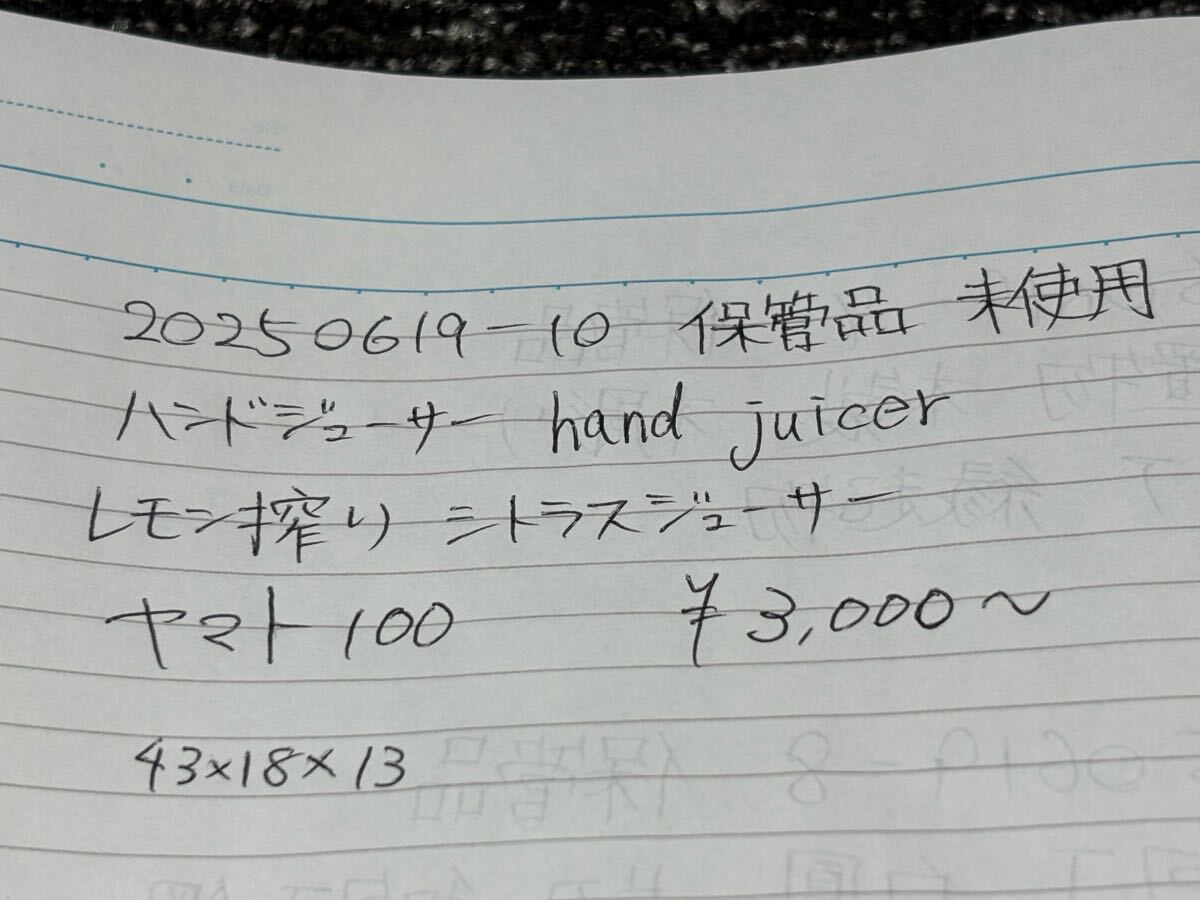 20250619-10 保管品 未使用
ハンドジューサー hand juicer
レモン搾り シトラスジューサー
ヤマト100 ¥3,000~
43×18×13